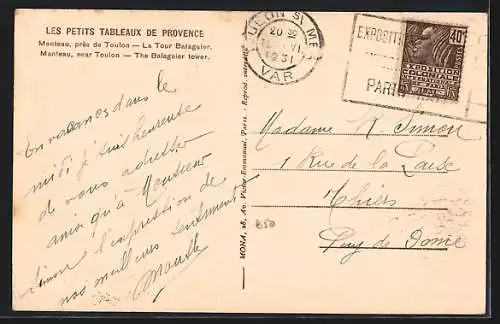 LES PETITS TABLEAUX DE PROVENCE
Manteau, près de Toulon - La Tour Balaguier.
Manteau, near Toulon — The Balaguier tower.
TOULON Sr MER
20 30
VI
1931
VAR
EXPOSITI
PARIS
40c
POSTES
EXPOSITION
COLONIALE
INTERNATIONALE
PARIS 1931
En vacances dans le
midi je suis heureuse
de vous adresser
ainsi qu'à Monsieur
Simon l'expression de
nos meilleurs sentiments
MONA, 28, Av. Victor Emmanuel, Paris. - Reprod. interdite
Madame K. Simon
1 Rue de la
Thiers
Puy de Dome